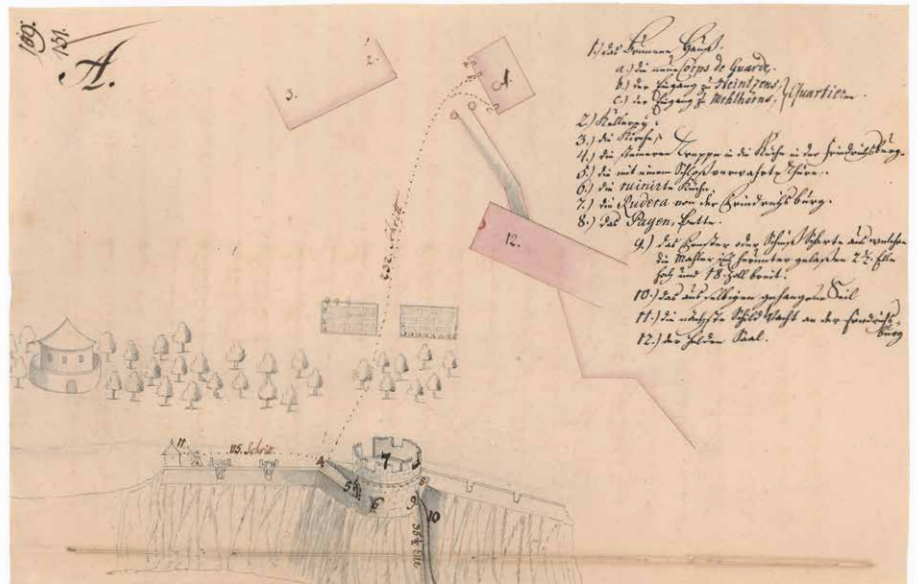 159.
151.
A.
1.) das Brunnen Hauß.
a.) die neue Corps de Guarde,
b.) der Eingang zu Heintzens
c.) der Eingang zu Mehlhorns, } Quartiere.
2.) Kellerey.
3.) die Kirche,
4.) die steinerne Treppe in die Küche in der Friedrichsburg.
5.) die mit einem Schloß verwahrte Thüre.
6.) die ruinirte Küche.
7.) die Rudera von der Friedrichsburg.
8.) das Pagen, Bette.
9.) das Fenster oder Schieß Scharte aus welcher
die Mahler sich herunter gelaßen 2½ Elle
hoch und 18. Zoll breit.
10.) das aus selbigen gehangene Seil
11.) die nächste Schild Wacht an der Friedrichs-
burg
12.) der Helden Saal.
1.
2.
3.
12.
11.
115. Schritt
4
7
5
6
8
9
10